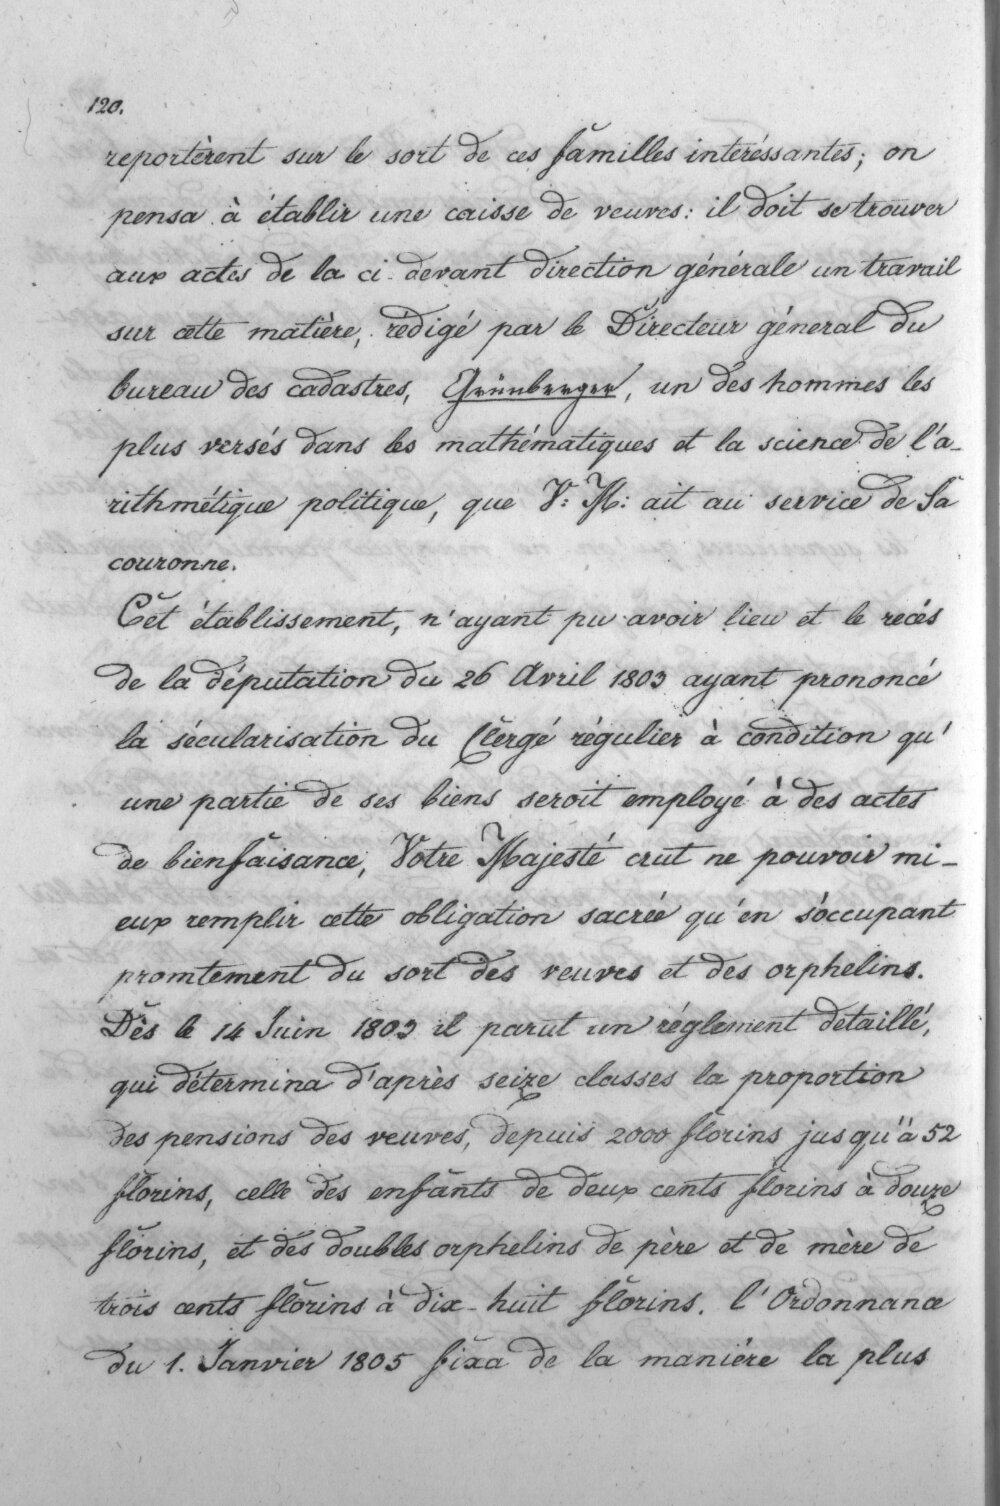 120.
reportèrent sur le sort de ces familles intéréssantes; on
pensa à établir une caisse de veuves: il doit se trouver
aux actes de la ci-devant direction générale un travail
sur cette matière, redigé par le Directeur géneral du
bureau des cadastres, Grünberger, un des hommes les
plus versés dans les mathématiques et la science de l'a-
rithmétique politique, que V: M: ait au service de Sa
couronne.
Cet établissement, n'ayant pu avoir lieu et le recés
de la députation du 26 Avril 1803 ayant prononcé
la sécularisation du Clergé régulier à condition qu'
une partie de ses biens seroit employé à des actes
de bienfaisance, Votre Majesté crut ne pouvoir mi-
eux remplir cette obligation sacrée qu'en s'occupant
promtement du sort des veuves et des orphelins.
Dès le 14 Juin 1803 il parut un réglement detaillé,
qui détermina d'après seize classes la proportion
des pensions des veuves, depuis 2000 florins jusqu'à 52
florins, celle des enfants de deux cents florins à douze
florins, et des doubles orphelins de père et de mère de
trois cents florins à dix-huit florins. l'Ordonnance
du 1. Janvier 1805 fixa de la maniére la plus